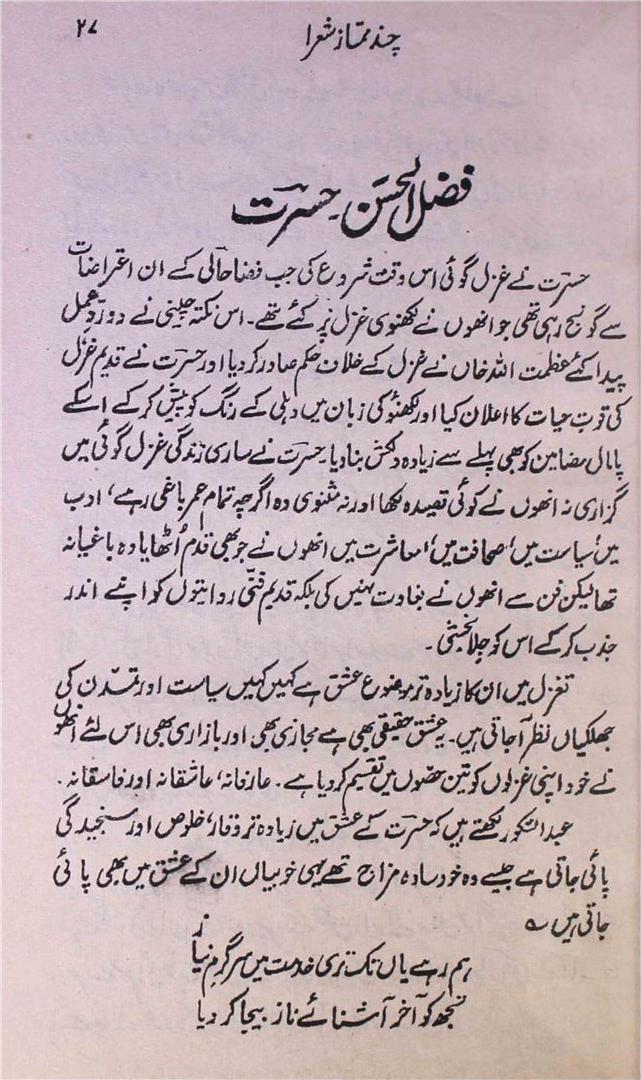 چند ممتاز شعرا ۲۷
فضل الحسن۔ حسرت
حسرت نے غزل گوئی اس وقت شروع کی جب فضا حالی کے ان اعتراضات
سے گونج رہی تھی جو انھوں نے لکھنوی غزل پر کئے تھے۔ اس نکتہ چینی نے دو ردِعمل
پیدا کئے عظمت اللہ خاں نے غزل کے خلاف حکم صادر کر دیا اور حسرت نے قدیم غزل
کی قوتِ حیات کا اعلان کیا اور لکھنؤ کی زبان میں دہلی کے رنگ کو پیش کر کے اسکے
پامال مضامین کو بھی پہلے سے زیادہ دلکش بنا دیا۔ حسرت نے ساری زندگی غزل گوئی میں
گزاری نہ انھوں نے کوئی قصیدہ لکھا اور نہ مثنوی وہ اگرچہ تمام عمر باغی رہے، ادب
میں، سیاست میں، صحافت میں، معاشرت میں انھوں نے جو بھی قدم اُٹھایا وہ باغیانہ
تھا لیکن فن سے انھوں نے بغاوت نہیں کی بلکہ قدیم فنّی روایتوں کو اپنے اندر
جذب کر کے اس کو جِلا بخشی۔
تغزل میں ان کا زیادہ تر موضوع عشق ہے کہیں کہیں سیاست اور تمدّن کی
جھلکیاں نظر آجاتی ہیں۔ یہ عشق حقیقی بھی ہے مجازی بھی اور بازاری بھی اس لئے انھوں
نے خود اپنی غزلوں کو تین حصّوں میں تقسیم کر دیا ہے۔ عارفانہ، عاشقانہ اور فاسقانہ۔
عبدالشکور لکھتے ہیں کہ حسرت کے عشق میں زیادہ تر وقار، خلوص اور سنجیدگی
پائی جاتی ہے جیسے وہ خود سادہ مزاج تھے یہی خوبیاں ان کے عشق میں بھی پائی
جاتی ہیں ؎
ہم رہے یاں تک تری خدمت میں سرگرمِ نیاز
تجھ کو آخر آشنائے نازِ بیجا کر دیا